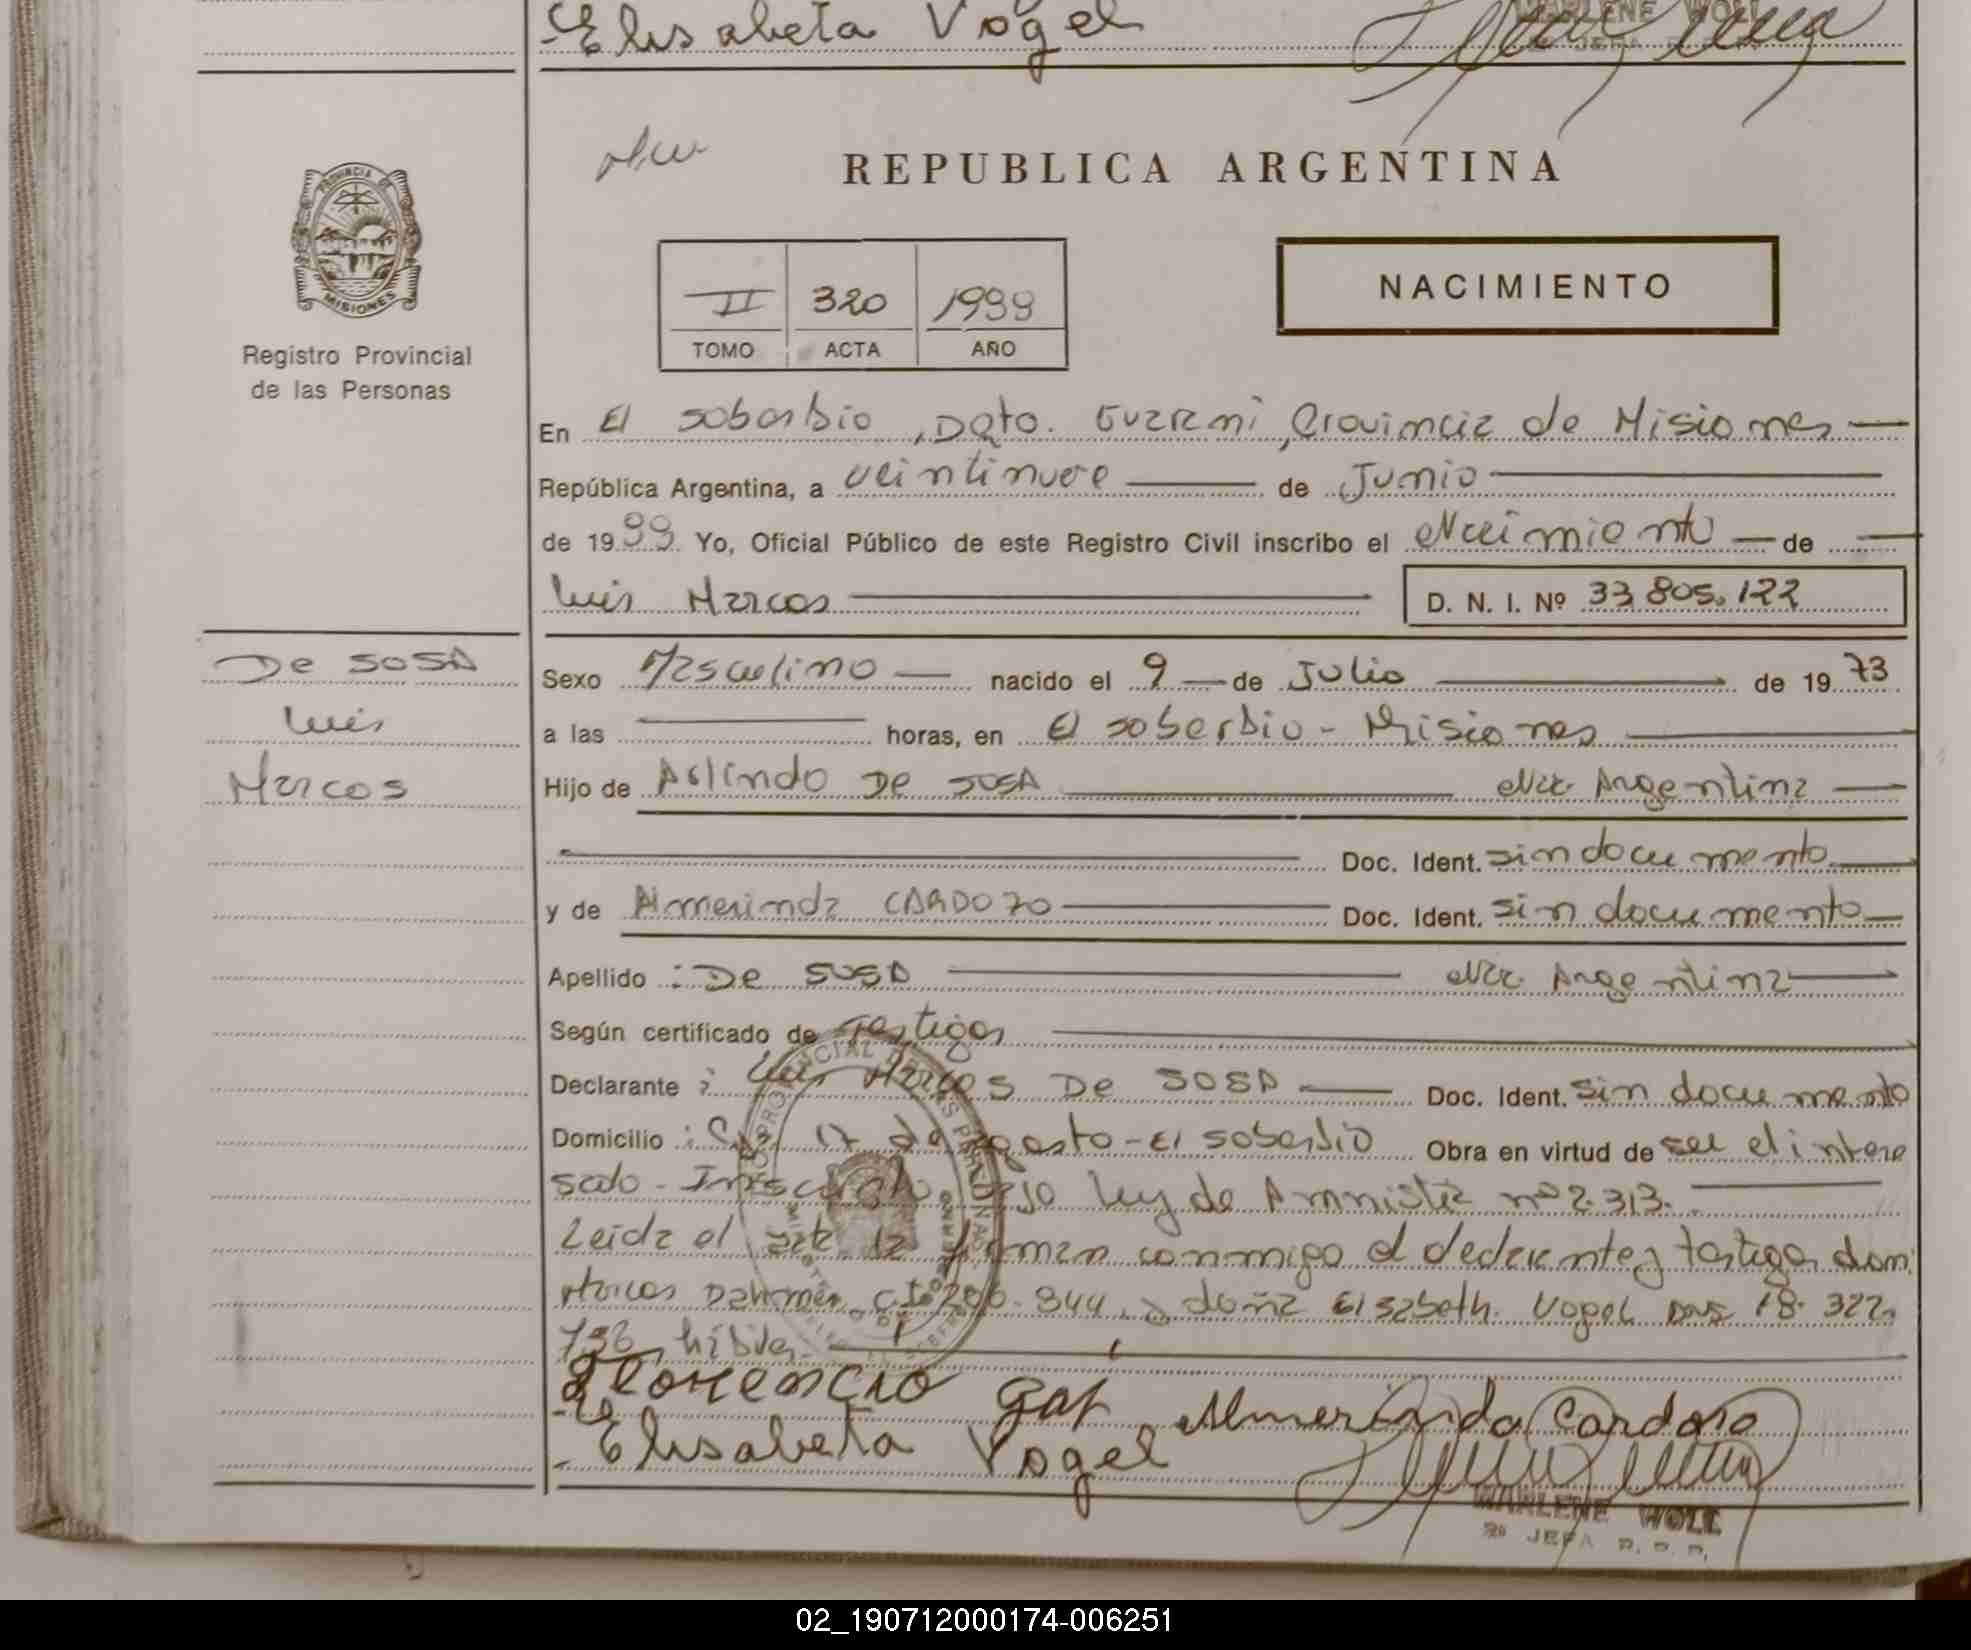 Elisabeta Vogel
MARLENE WOLL
REPUBLICA ARGENTINA
PROVINCIA DE
MISIONES
Registro Provincial
de las Personas
II 320 1999
TOMO ACTA AÑO
NACIMIENTO
En El soberbio, Dpto. Guarani, Provincia de Misiones
República Argentina, a veintinueve de Junio
de 1999 Yo, Oficial Público de este Registro Civil inscribo el Nacimiento de
Luis Marcos D. N. I. Nº 33.805.122
De SOSA
Luis
Marcos
Sexo Masculino nacido el 9 de Julio de 1973
a las horas, en El soberbio - Misiones
Hijo de Arlindo De SOSA Nac. Argentina
Doc. Ident. sin documento
y de Almerinda CARDOZO Doc. Ident. sin documento
Apellido : De SOSA Nac. Argentina
Según certificado de Testigos
Declarante : Luis Marcos De SOSA Doc. Ident. sin documento
Domicilio : 17 de Agosto - El soberbio Obra en virtud de ser el intere
sado - Inscripto bajo ley de Amnistia nº 2.313.
Leida el acta la firman conmigo el declarante y testigos don
Marcos CI 206.344. y doña Elisabeth Vogel DNI 18.322.
736, hábiles.
Florencio Almerinda Cardozo
Elisabeta Vogel
MARLENE WOLL
JEFA R. P. P.
02_190712000174-006251